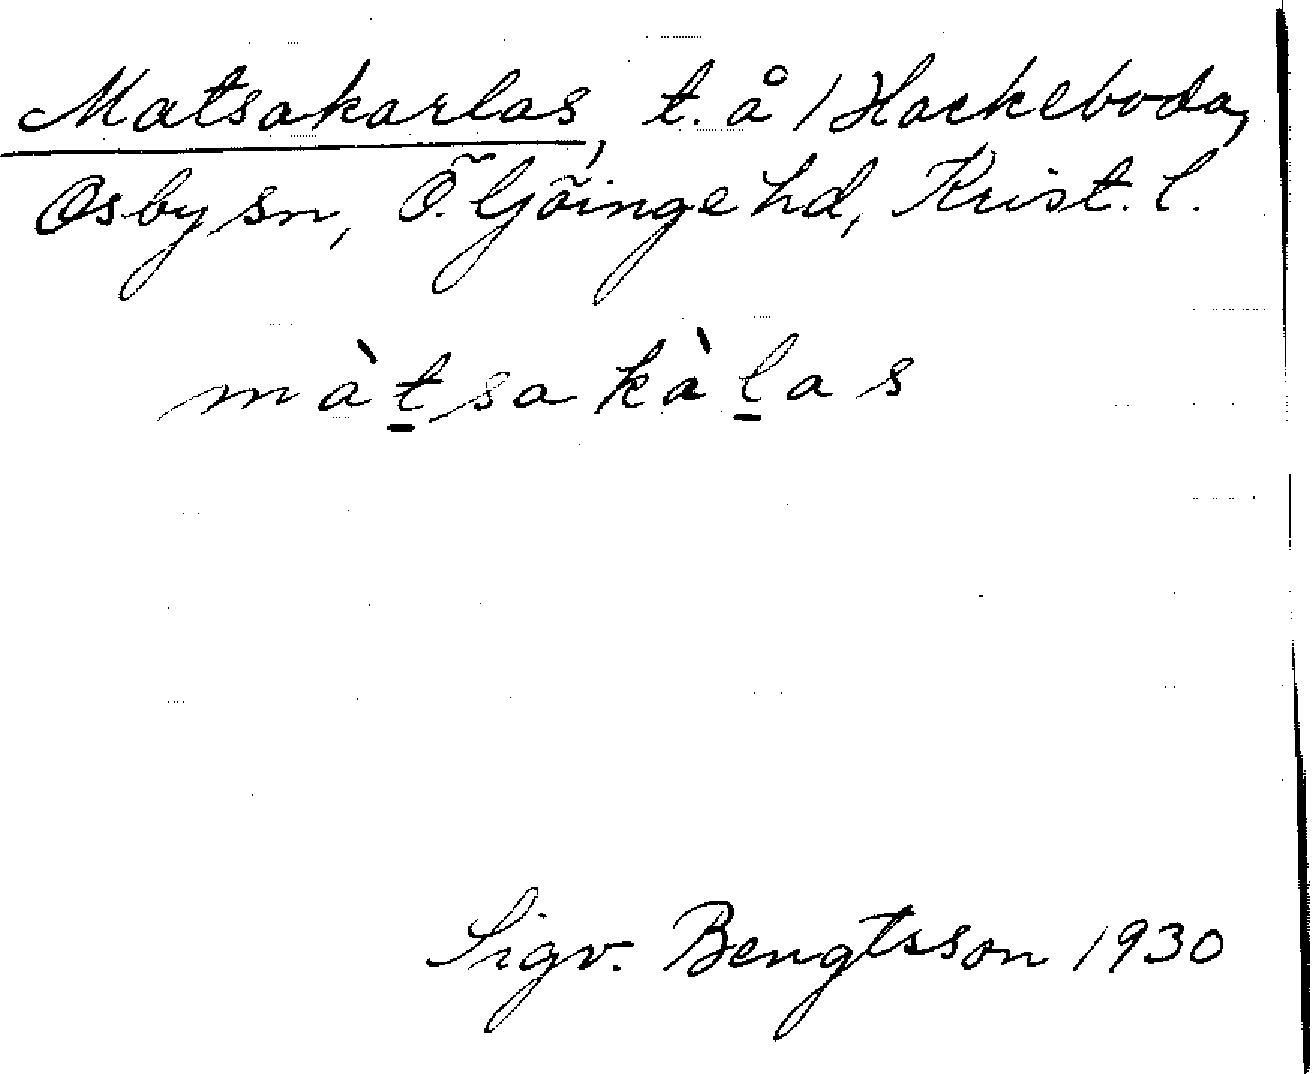 Matsakarlas, t. å 1 Hackeboda,
Osby sn, Ö. Göinge hd, Krist. l.
màṯsakàḻas
Sigv. Bengtsson 1930